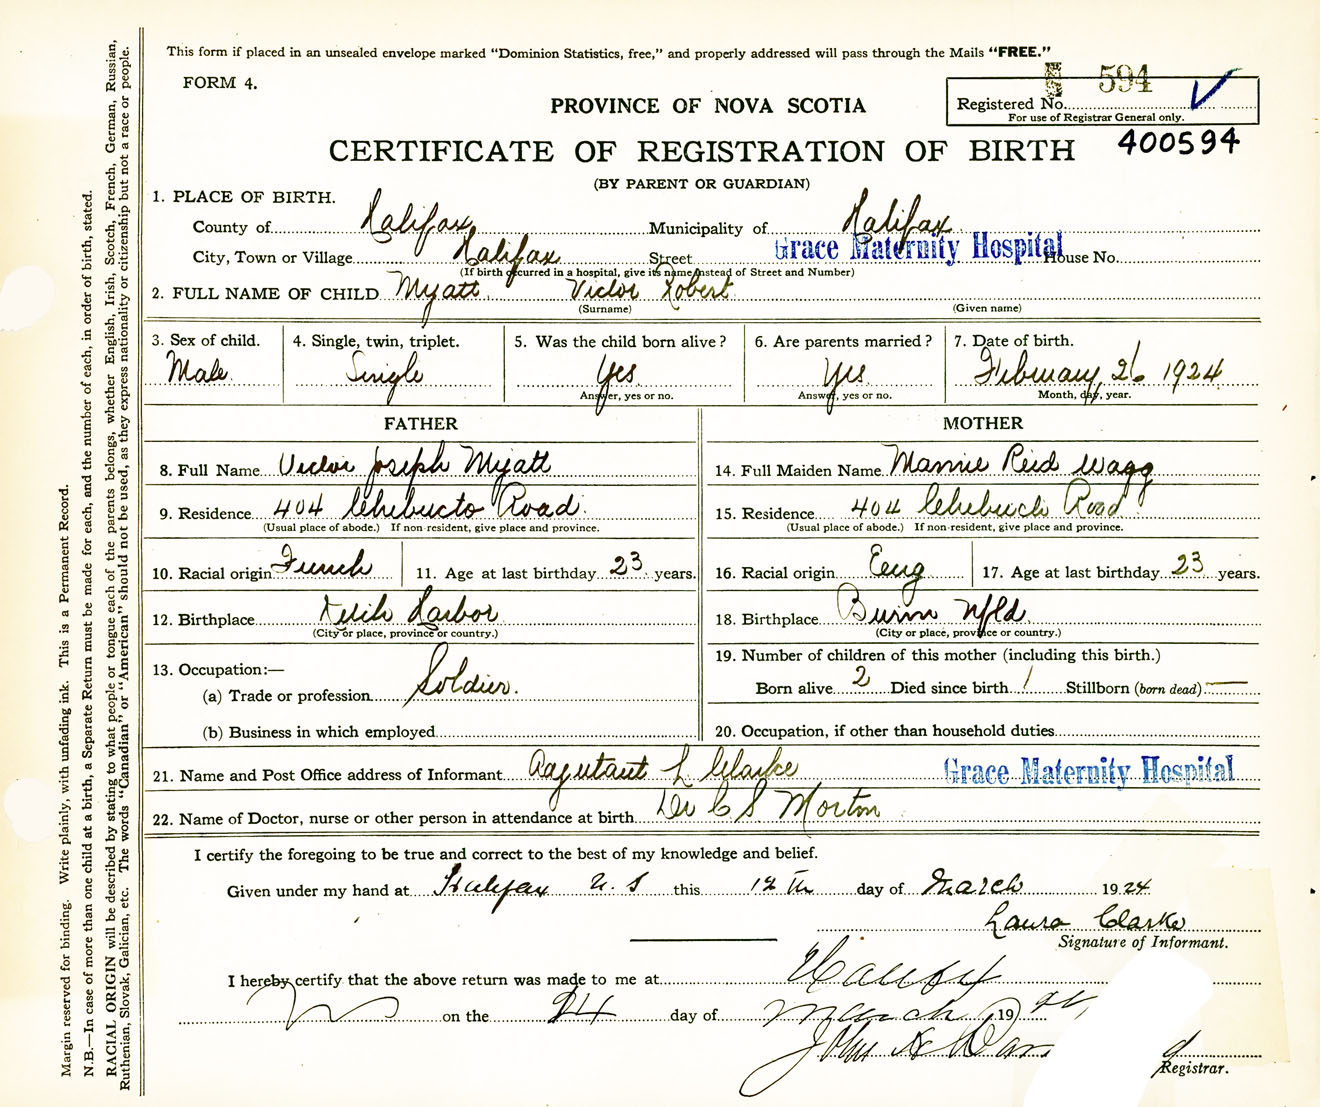 This form if placed in an unsealed envelope marked "Dominion Statistics, free," and properly addressed will pass through the Mails "FREE."
FORM 4.
594
Registered No.
For use of Registrar General only.
PROVINCE OF NOVA SCOTIA
400594
CERTIFICATE OF REGISTRATION OF BIRTH
(BY PARENT OR GUARDIAN)
1. PLACE OF BIRTH.
County of Halifax Municipality of Halifax
City, Town or Village Halifax Street Grace Maternity Hospital House No.
(If birth occurred in a hospital, give its name instead of Street and Number)
2. FULL NAME OF CHILD Myatt Victor Robert
(Surname) (Given name)
3. Sex of child. 4. Single, twin, triplet. 5. Was the child born alive? 6. Are parents married? 7. Date of birth.
Male Single Yes Yes February 26 1924
Answer, yes or no. Answer, yes or no. Month, day, year.
FATHER MOTHER
8. Full Name Victor Joseph Myatt
14. Full Maiden Name Mannie Reid Wagg
9. Residence 404 Chebucto Road
(Usual place of abode.) If non-resident, give place and province.
15. Residence 404 Chebucto Road
(Usual place of abode.) If non-resident, give place and province.
10. Racial origin French 11. Age at last birthday 23 years.
16. Racial origin Eng 17. Age at last birthday 23 years.
12. Birthplace Harbor
(City or place, province or country.)
18. Birthplace Burin Nfld
(City or place, province or country.)
13. Occupation:—
(a) Trade or profession Soldier.
(b) Business in which employed
19. Number of children of this mother (including this birth.)
Born alive 2 Died since birth 1 Stillborn (born dead) —
20. Occupation, if other than household duties
21. Name and Post Office address of Informant Adjutant L Clarke Grace Maternity Hospital
22. Name of Doctor, nurse or other person in attendance at birth Dr C S Morton
I certify the foregoing to be true and correct to the best of my knowledge and belief.
Given under my hand at Halifax N. S this 12th day of March 1924
Laura Clarke
Signature of Informant.
I hereby certify that the above return was made to me at Halifax
on the 24 day of March 19 24
John A
Registrar.
Margin reserved for binding. Write plainly, with unfading ink. This is a Permanent Record.
N.B.—In case of more than one child at a birth, a Separate Return must be made for each, and the number of each, in order of birth, stated.
RACIAL ORIGIN will be described by stating to what people or tongue each of the parents belongs, whether English, Irish, Scotch, French, German, Russian,
Ruthenian, Slovak, Galician, etc. The words "Canadian" or "American" should not be used, as they express nationality or citizenship but not a race or people.